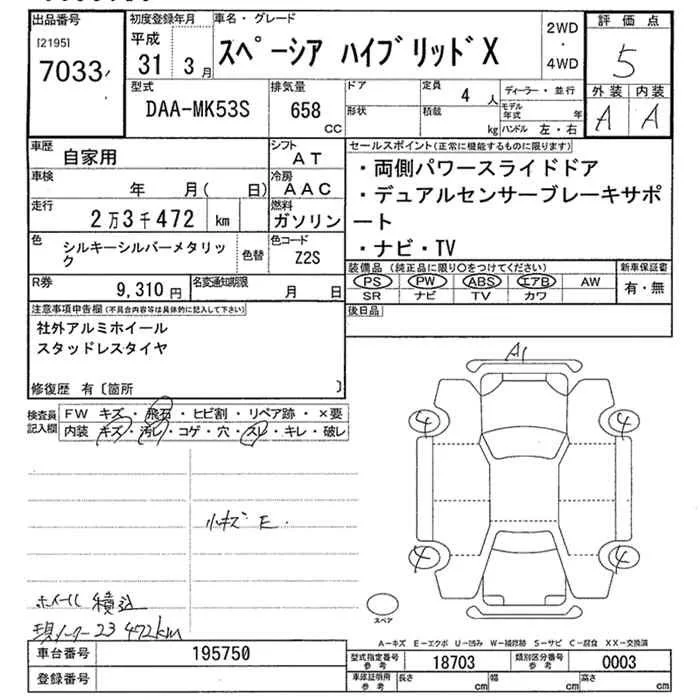 出品番号
[2195]
7033
初度登録年月
平成
31 3月
車名・グレード
スペーシア ハイブリッドX
2WD
・
4WD
評価点
5
外装 内装
A A
型式
DAA-MK53S
排気量
658
CC
ドア
定員
4 人
ディーラー・並行
形状
積載
kg
モデル年式
年
ハンドル 左・右
車歴
自家用
シフト
AT
車検
年 月( 日)
冷房
AAC
走行
2万3千472 km
燃料
ガソリン
色
シルキーシルバーメタリック
色替
色コード
Z2S
R券
9,310 円
名変通知期限
月 日
セールスポイント(正常に機能するものに限ります)
・両側パワースライドドア
・デュアルセンサーブレーキサポ
ート
・ナビ・TV
装備品 (純正品に限り○をつけてください)
PS PW ABS エアB AW
SR ナビ TV カワ
新車保証書
有・無
後日品
注意事項申告欄(不具合内容等は具体的に記入して下さい)
社外アルミホイール
スタッドレスタイヤ
修復歴 有〔箇所 〕
検査員
記入欄
FW キズ・飛石・ヒビ割・リペア跡・×要
内装 キズ・汚レ・コゲ・穴・スレ・キレ・破レ
小キズ E.
ホイール積込
現メーター23472km
A1
4 4
4 4
スペア
A-キズ E-エクボ U-凹み W-補修跡 S-サビ C-腐食 XX-交換済
車台番号
195750
登録番号
型式指定番号
参考
18703
類別区分番号
参考
0003
車庫証明用
参考
長さ cm
幅 cm
高さ cm